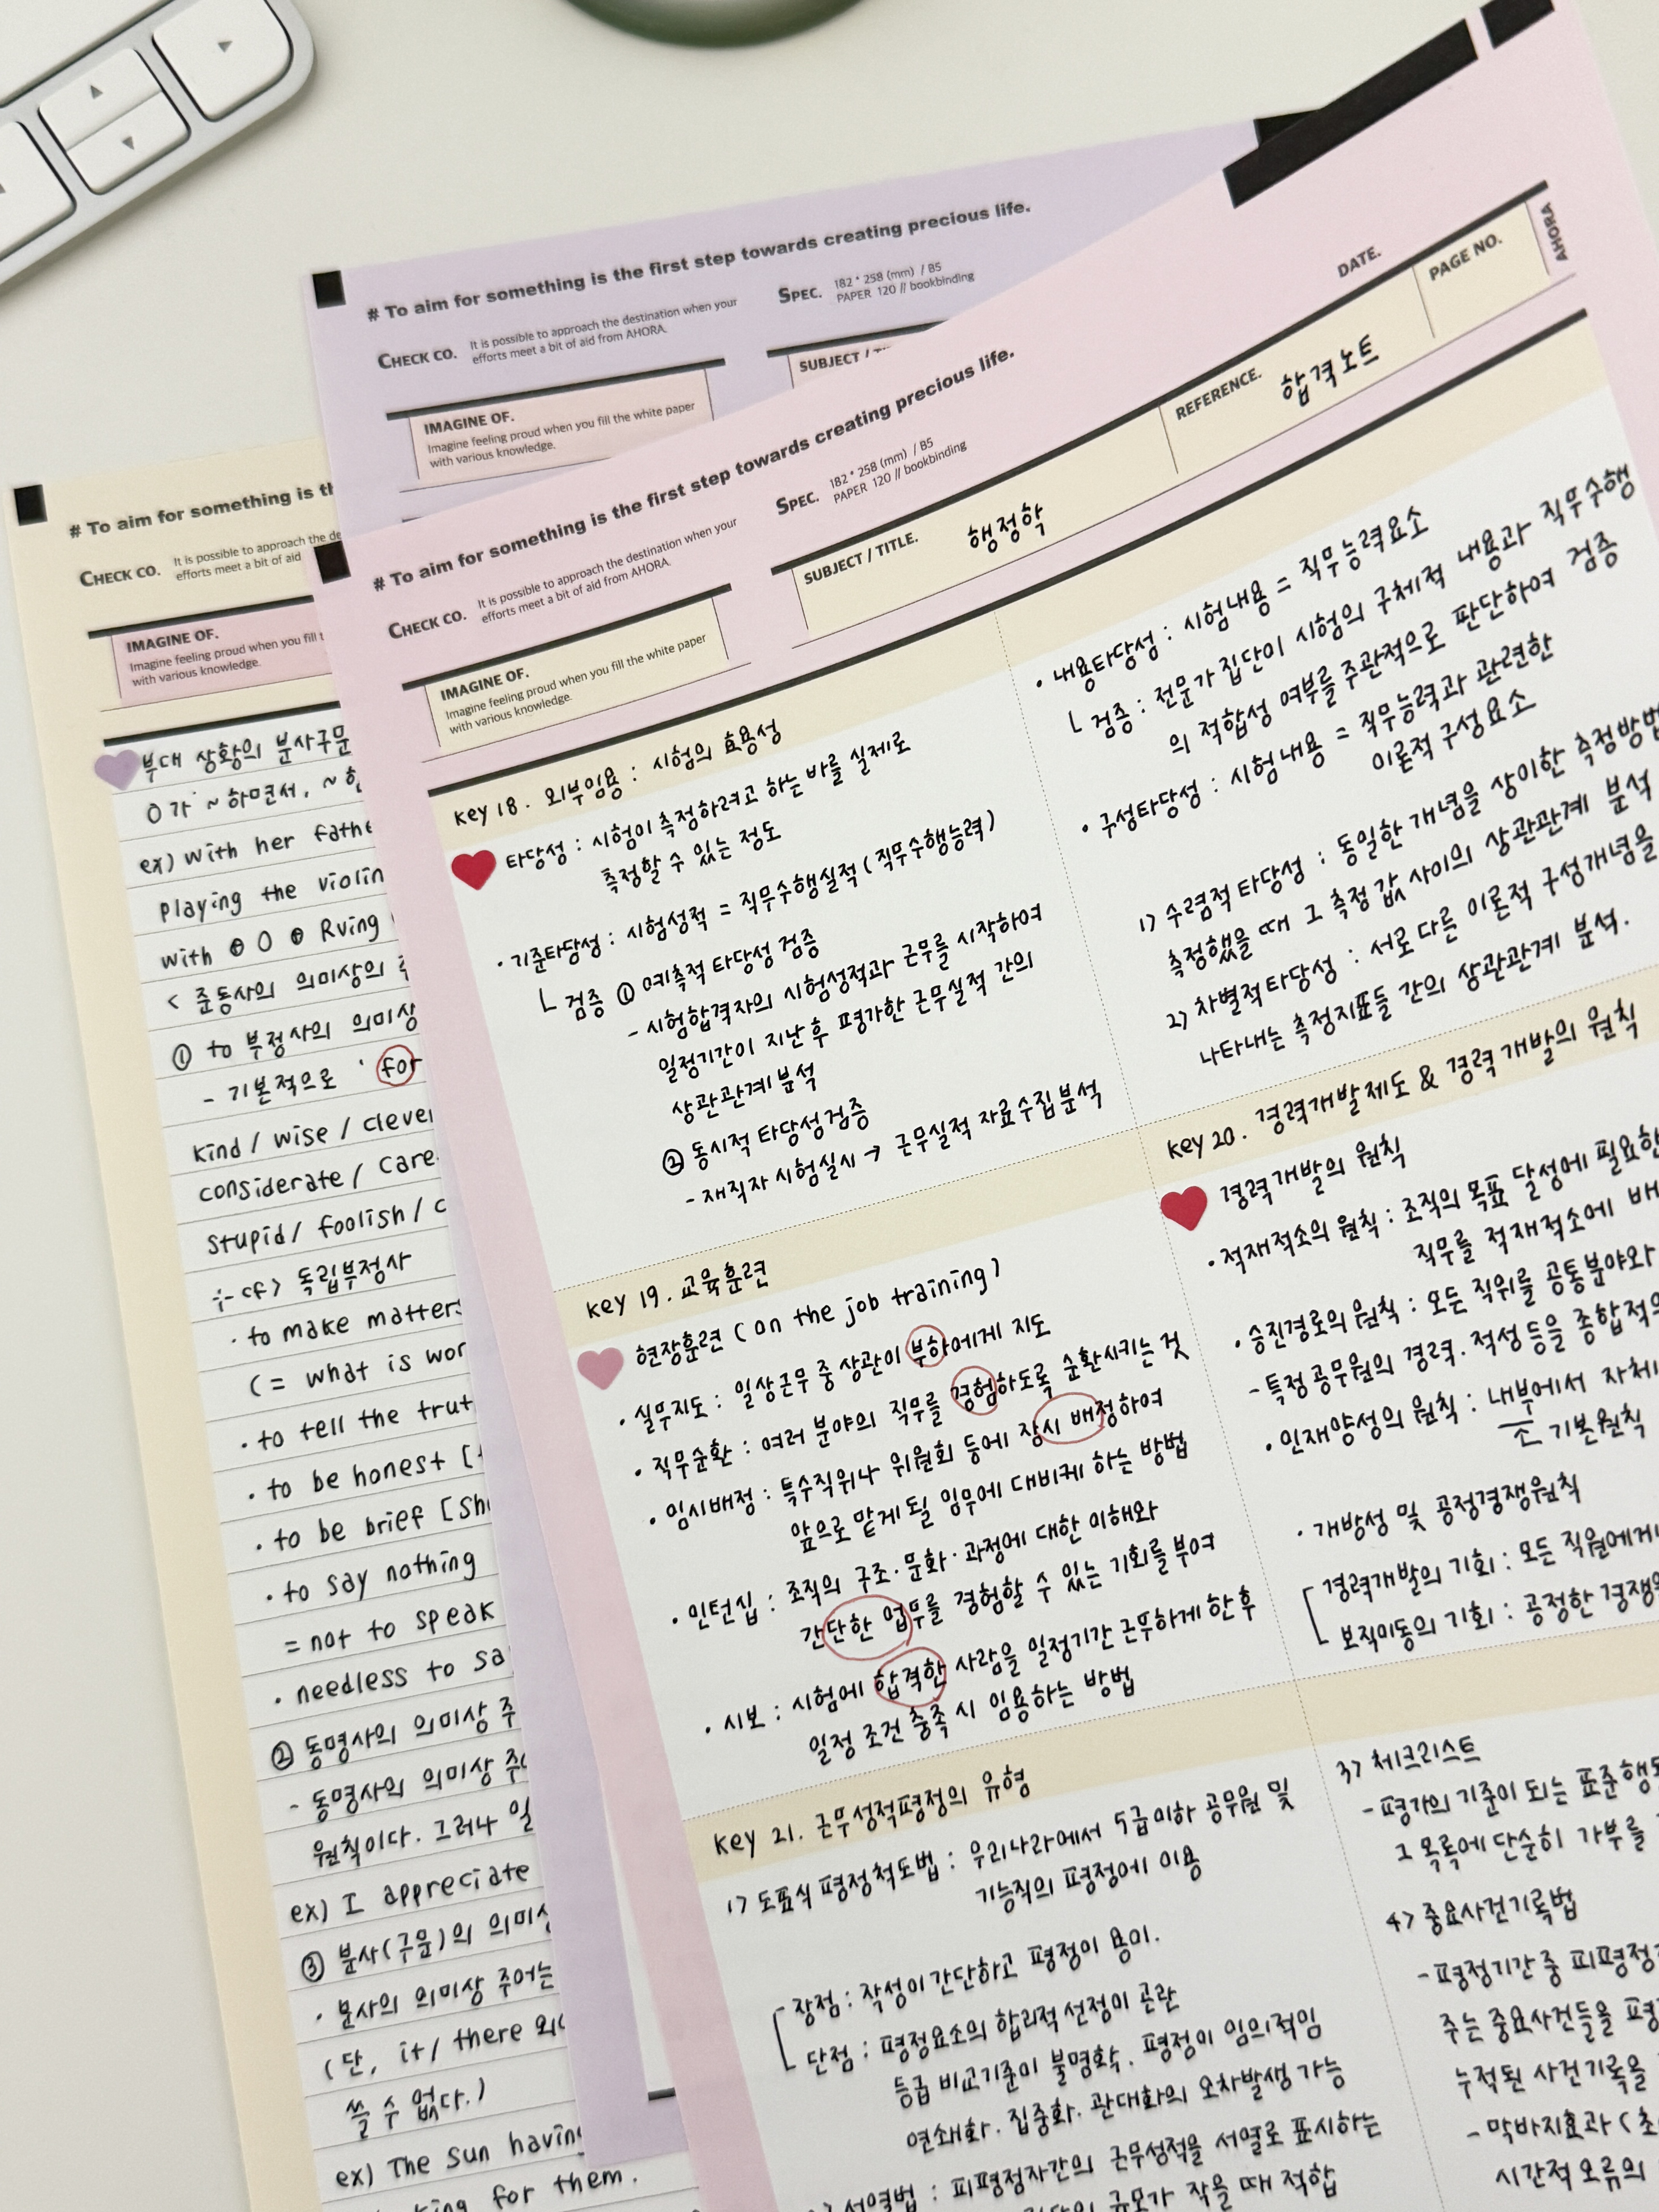 # To aim for something is the first step towards creating precious life.
CHECK CO.
It is possible to approach the destination when your
efforts meet a bit of aid from AHORA.
SPEC.
182 * 258 (mm) / B5
PAPER 120 // bookbinding
SUBJECT /
IMAGINE OF.
Imagine feeling proud when you fill the white paper
with various knowledge.
# To aim for something is the first step towards creating precious life.
CHECK CO.
It is possible to approach the destination when your
efforts meet a bit of aid from AHORA.
SPEC.
182 * 258 (mm) / B5
PAPER 120 // bookbinding
DATE.
PAGE NO.
AHORA
REFERENCE. 합격노트
SUBJECT / TITLE. 행정학
IMAGINE OF.
Imagine feeling proud when you fill the white paper
with various knowledge.
key 18. 외부임용 : 시험의 효용성
타당성 : 시험이 측정하려고 하는 바를 실제로
측정할 수 있는 정도
· 기준타당성 : 시험성적 = 직무수행실적 (직무수행능력)
ㄴ 검증 ① 예측적 타당성 검증
- 시험합격자의 시험성적과 근무를 시작하여
일정기간이 지난 후 평가한 근무실적 간의
상관관계 분석
② 동시적 타당성검증
- 재직자 시험실시 → 근무실적 자료수집 분석
· 내용타당성 : 시험내용 = 직무능력요소
ㄴ 검증 : 전문가 집단이 시험의 구체적 내용과 직무수행
의 적합성 여부를 주관적으로 판단하여 검증
· 구성타당성 : 시험내용 = 직무능력과 관련한
이론적 구성요소
1) 수렴적 타당성 : 동일한 개념을 상이한 측정방법
측정했을 때 그 측정 값 사이의 상관관계 분석
2) 차별적 타당성 : 서로 다른 이론적 구성개념을
나타내는 측정지표들 간의 상관관계 분석.
key 19. 교육훈련
현장훈련 (on the job training)
· 실무지도 : 일상근무 중 상관이 부하에게 지도
· 직무순환 : 여러 분야의 직무를 경험하도록 순환시키는 것
· 임시배정 : 특수직위나 위원회 등에 잠시 배정하여
앞으로 맡게 될 임무에 대비케 하는 방법
· 인턴십 : 조직의 구조·문화·과정에 대한 이해와
간단한 업무를 경험할 수 있는 기회를 부여
· 시보 : 시험에 합격한 사람을 일정기간 근무하게 한 후
일정 조건 충족 시 임용하는 방법
key 20. 경력개발제도 & 경력개발의 원칙
경력개발의 원칙
· 적재적소의 원칙 : 조직의 목표 달성에 필요한
직무를 적재적소에 배
· 승진경로의 원칙 : 모든 직위를 공통분야와
- 특정 공무원의 경력. 적성 등을 종합적으
· 인재양성의 원칙 : 내부에서 자체
기본원칙
· 개방성 및 공정경쟁원칙
경력개발의 기회 : 모든 직원에게
보직이동의 기회 : 공정한 경쟁
key 21. 근무성적평정의 유형
1) 도표식 평정척도법 : 우리나라에서 5급이하 공무원 및
기능직의 평정에 이용
장점 : 작성이 간단하고 평정이 용이.
단점 : 평정요소의 합리적 선정이 곤란
등급 비교기준이 불명확. 평정이 임의적임
연쇄화. 집중화. 관대화의 오차발생 가능
서열법 : 피평정자간의 근무성적을 서열로 표시하는
규모가 작을 때 적합
3) 체크리스트
- 평가의 기준이 되는 표준행동
그 목록에 단순히 가부를
4) 중요사건기록법
- 평정기간 중 피평정
주는 중요사건들을 평정
누적된 사건기록을
- 막바지효과 (초
시간적 오류의
# To aim for something is th
CHECK CO.
It is possible to approach the de
efforts meet a bit of aid
IMAGINE OF.
Imagine feeling proud when you fill t
with various knowledge.
부대 상황의 분사구문
O가 ~하면서, ~한
ex) with her fathe
playing the violin
with ⊕ O ⊕ Rving
< 준동사의 의미상의 주
① to 부정사의 의미상
- 기본적으로 ' for
kind / wise / clever
considerate / care
stupid / foolish / c
cf) 독립부정사
· to make matters
(= what is wor
· to tell the trut
· to be honest [
· to be brief [sh
· to say nothing
= not to speak
· needless to sa
② 동명사의 의미상 주
- 동명사의 의미상 주
원칙이다. 그러나 일
ex) I appreciate
③ 분사(구문)의 의미상
· 분사의 의미상 주어는
(단, it / there 외
쓸 수 없다.)
ex) The sun having
for them.